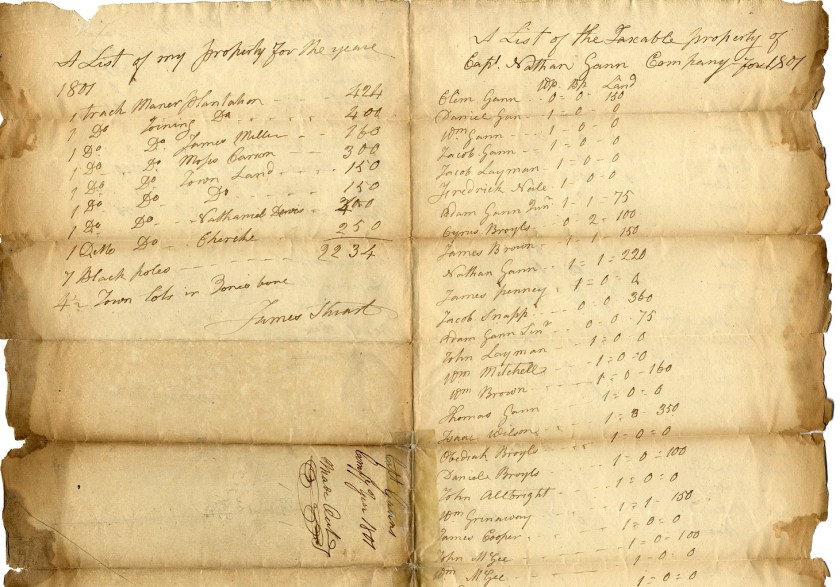 A List of my property for the year
1801
1 track Maner plantation - 424
1 Do Joining Do - - - - 400
1 Do Do James Miller - - 160
1 Do Do Moses Carson - - 300
1 Do Do Town Land - - - 150
1 Do Do Do - - - - - 150
1 Do Do - - Nathaniel Daves -
1 Ditto Do - - Cherche 250
2234
7 Black poles - - - - -
4½ Town lots in Jonesbone
James Stuart
Capt Ganns
Compy for 1801
Made Out
A List of the Taxable property of
Capt. Nathan Gann Company - for 1801
Wp. Bp. Land
Clem Gann - 0 = 0 - 150
Daniel Gan - 1 - 0 - 0
Wm Gann - - 1 - 0 - 0
Jacob Gann - - 1 - 0 - 0
Jacob Layman - 1 = 0 - 0
Fredrick Nale - 1 - 0 - 0
Adam Gann Junr - 1 - 1 - 75
Cyrus Broyls - - 0 - 2 = 100
James Brown - - 1 - 1 - 150
Nathan Gann - - - 1 = 1 = 220
James penney - - 1 = 0 = 0
Jacob Snapp - - - 0 - 0 360
Adam Gann Sinr - - 0 - 0 - 75
John Layman - - - 1 = 0 - 0
Wm Mitchell - - - 1 = 0 = 0
Wm Brown - - - 1 = 0 - 160
Thomas Gann - - - 1 = 0 - 0
Isaac Wilson - - - 350
Obediah Broyls - - - 1 = 0 = 0
Daniel Broyls - - - 1 = 0 = 100
John Allbright - - - 1 = 0 = 0
Wm Grinaway - - - 1 = 1 - 150
James Cooper - - - 1 = 0 = 0
John McGee - - - 1 = 0 - 100
Wm McGee - - - 1 - 0 = 0
1 = 0 = 0